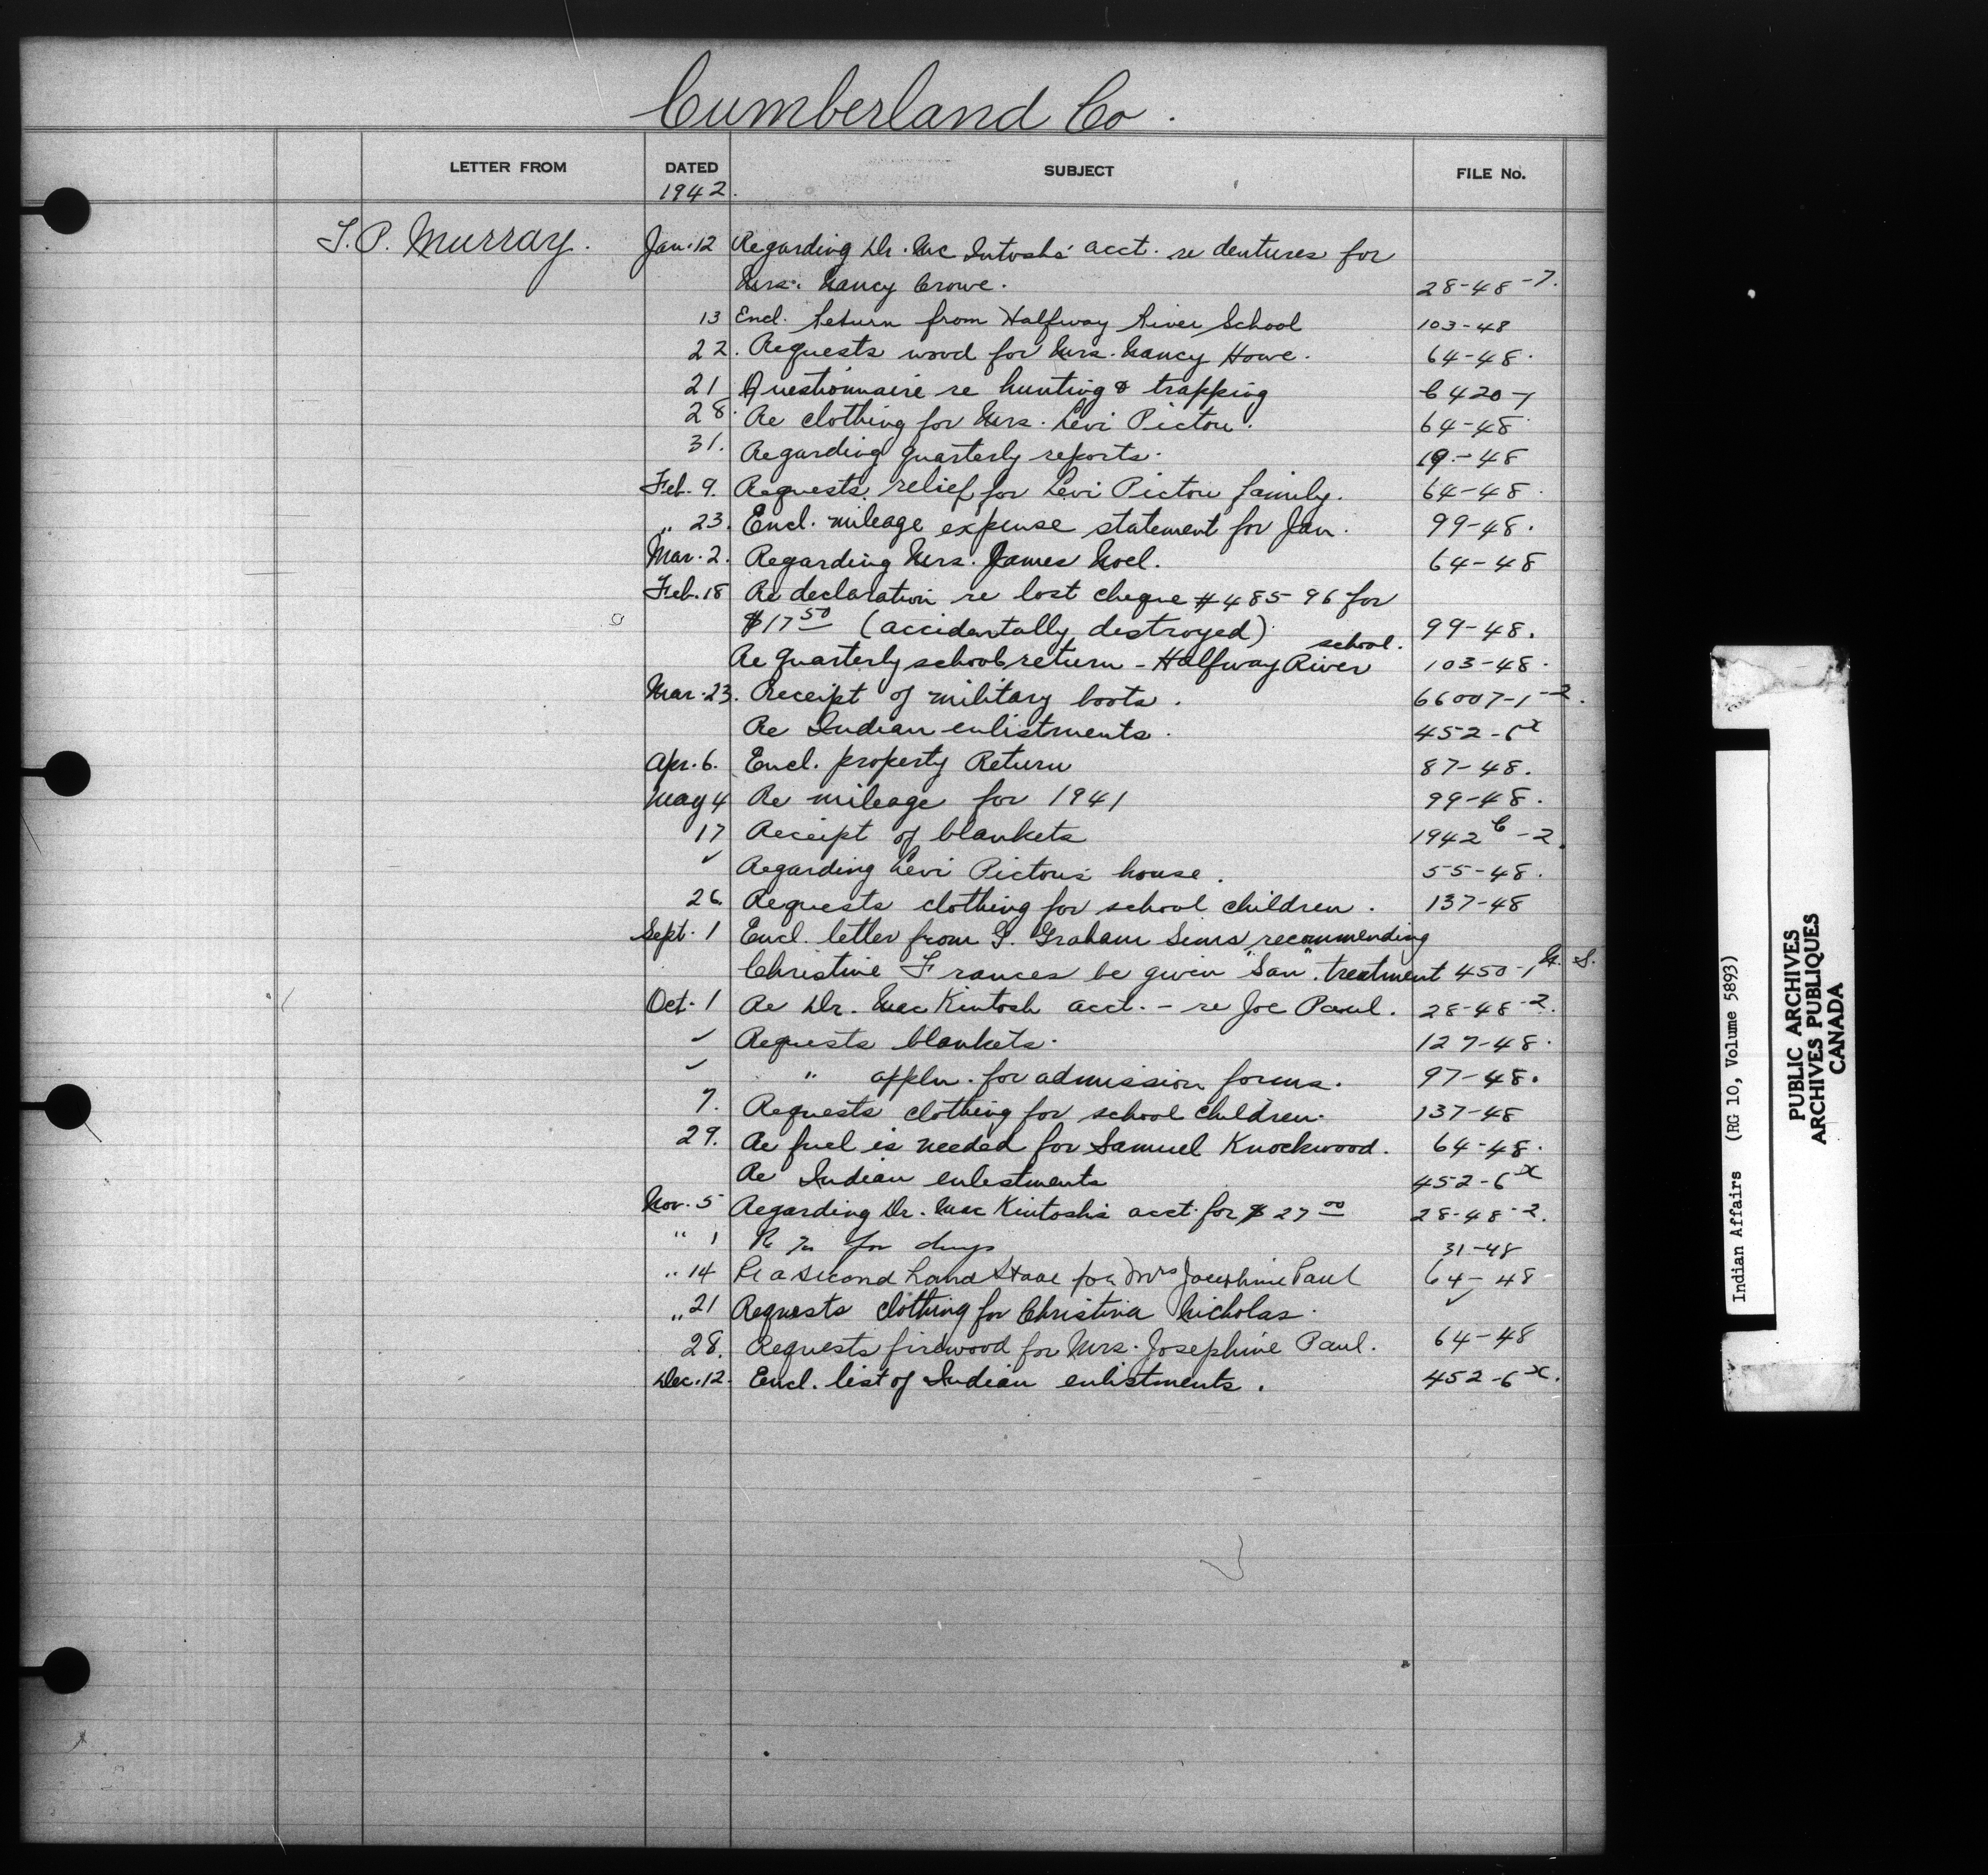 Cumberland Co.
LETTER FROM DATED SUBJECT FILE No.
1942.
T. P. Murray. Jan. 12 Regarding Dr. Mac Intosh's acct. re dentures for
Mrs. Nancy Crowe. 28-48-7.
13 Encl. Return from Halfway River School 103-48
22. Requests wood for Mrs. Nancy Howe. 64-48.
21 Questionnaire re hunting & trapping 6420-1
28. Re clothing for Mrs. Levi Pictou. 64-48
31. Regarding quarterly reports. 19-48
Feb. 9. Requests relief for Levi Pictou family. 64-48.
" 23. Encl. mileage expense statement for Jan. 99-48.
Mar. 2. Regarding Mrs. James Noel. 64-48
Feb. 18 Re declaration re lost cheque #48596 for
$17 50 (accidentally destroyed) 99-48.
school.
Re Quarterly school return - Halfway River 103-48.
Mar. 23. Receipt of military boots. 66007-1-2.
Re Indian enlistments. 452-6x
Apr. 6. Encl. property Return 87-48.
May 4 Re mileage for 1941 99-48.
17 Receipt of blankets 1942 C-2.
✓ Regarding Levi Pictou's house. 55-48.
26. Requests clothing for school children. 137-48
Sept. 1 Encl. letter from G. Graham Sims recommending
Christine Frances be given "San". treatment 450-1 N. S.
Oct. 1 Re Dr. Mac Kintosh acct. - re Joe Paul. 28-48-2.
✓ Requests blankets. 127-48.
✓ " appln. for admission forms. 97-48.
7. Requests clothing for school children. 137-48
29. Re fuel is needed for Samuel Knockwood. 64-48.
Re Indian enlistments 452-6x
Nov. 5 Regarding Dr. Mac Kintosh's acct. for $27 00 28-48-2.
" 1 for drugs 31-48
" 14 Re a second hand Stove for Mrs Josephine Paul 64-48
" 21 Requests clothing for Christina Nicholas. ✓
28. Requests firewood for Mrs. Josephine Paul. 64-48
Dec. 12. Encl. list of Indian enlistments. 452-6x.
Indian Affairs (RG 10, Volume 5893)
PUBLIC ARCHIVES
ARCHIVES PUBLIQUES
CANADA